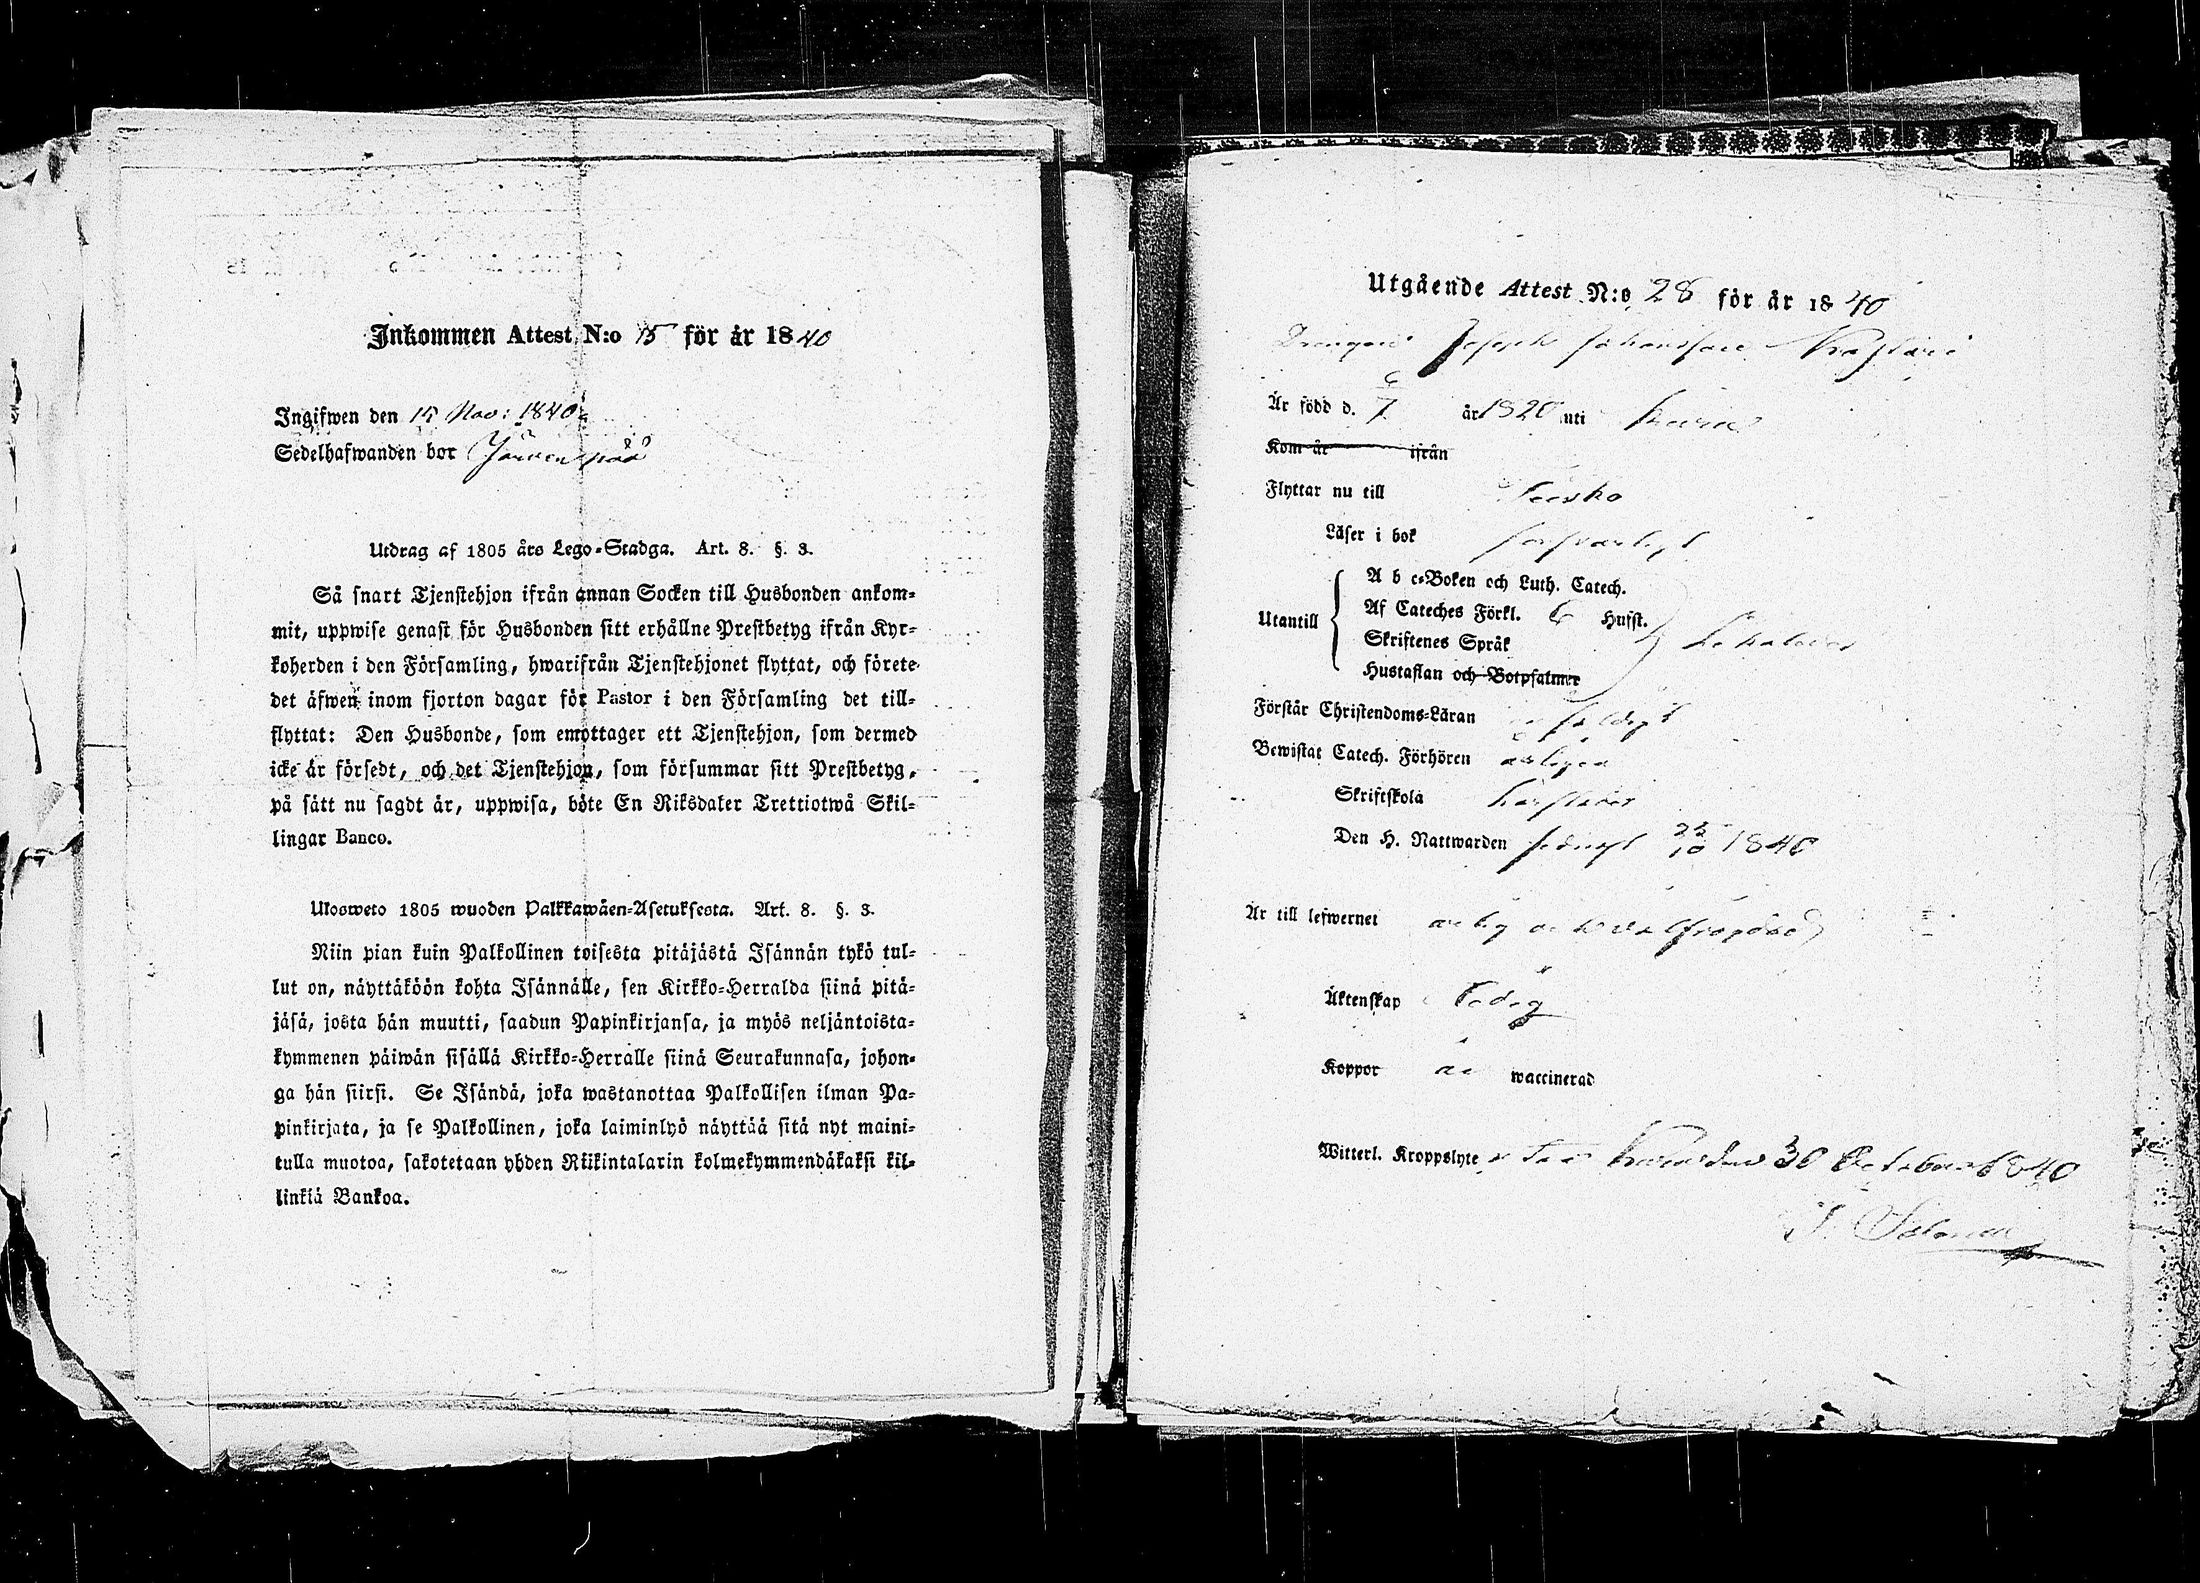 Inkommen Attest N:o 15 för år 1840
Ingifwen den 15 Nov: 1840
Sedelhafwanden bor Järvenpää
Utdrag af 1805 års Lego-Stadga. Art. 8. §. 3.
Så snart Tjenstehjon ifrån annan Socken till Husbonden ankom-
mit, uppwise genast för Husbonden sitt erhållne Prestbetyg ifrån Kyr-
koherden i den Församling, hwarifrån Tjenstehjonet flyttat, och förete
det äfwen inom fjorton dagar för Pastor i den Församling det till-
flyttat: Den Husbonde, som emottager ett Tjenstehjon, som dermed
icke är försedt, och det Tjenstehjon, som försummar sitt Prestbetyg,
på sätt nu sagdt är, uppwisa, böte En Riksdaler Trettiotwå Skil-
lingar Banco.
Ulosweto 1805 wuoden Palkkawäen-Asetuksesta. Art. 8. §. 3.
Niin pian kuin Palkollinen toisesta pitäjästä Isännän tykö tul-
lut on, näyttäköön kohta Isännälle, sen Kirkko-Herralda siinä pitä-
jäsä, josta hän muutti, saadun Papinkirjansa, ja myös neljäntoista-
kymmenen päiwän sisällä Kirkko-Herralle siinä Seurakunnasa, johon-
ga hän siirsi. Se Isändä, joka wastanottaa Palkollisen ilman Pa-
pinkirjata, ja se Palkollinen, joka laiminlyö näyttää sitä nyt maini-
tulla muotoa, sakotetaan yhden Riikintalarin kolmekymmendäkaksi kil-
linkiä Bankoa.
Utgående Attest N:o 28 för år 1840
Drengen Joseph Johansson
Är född d. 7 år 1820 uti
Kom år ifrån
Flyttar nu till Teisko
Läser i bok försvarligt
A b c-Boken och Luth. Catech.
Utantill Af Cateches Förkl. 6 Hufst.
Skriftenes Språk
Hustaflan och Botpsalmer
Förstår Christendoms-Läran
Bewistat Catech. Förhören årligen
Skriftskola
Den H. Nattwarden sednast 25/10 1840
Är till lefwernet ärlig och wälfrägdad
Äktenskap Ledig
Koppor är waccinerad
Witterl. Kroppslyte den 30 October 1840